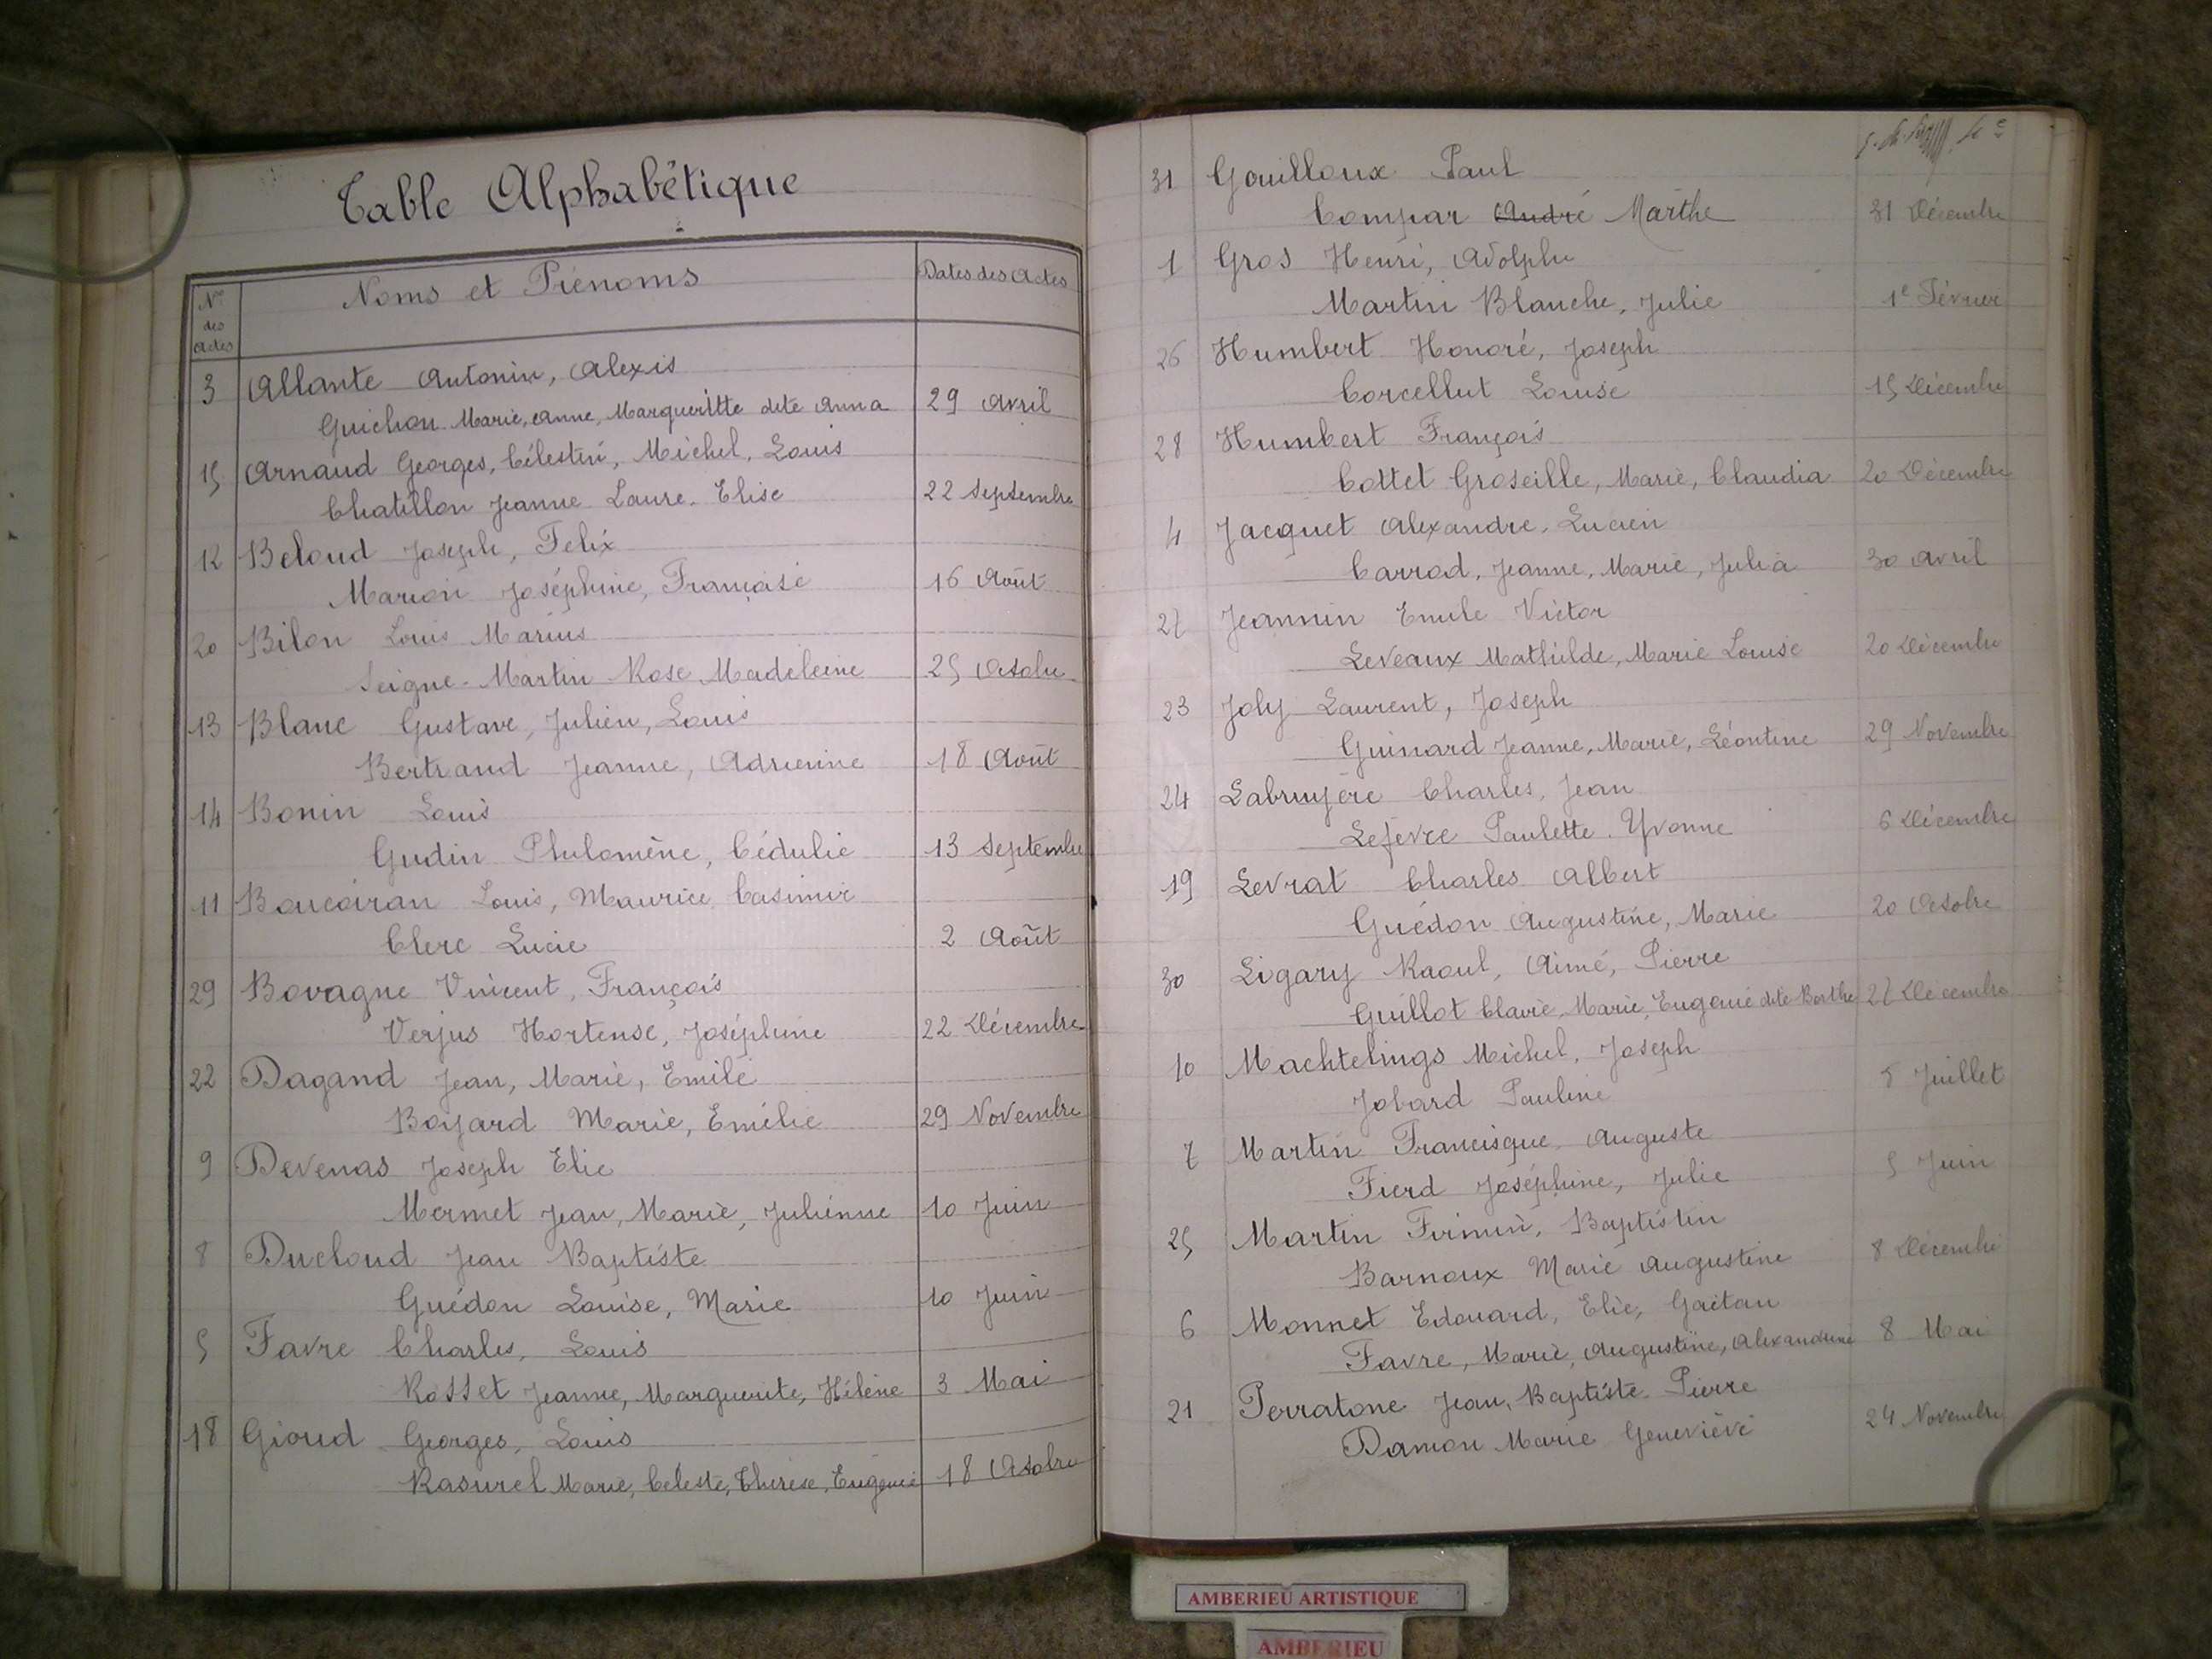 Table Alphabétique
Nos des Actes
Noms et Prénoms
Dates des Actes
3 Allante Antonin, Alexis
Guichon Marie, Anne, Margueritte dite Anna 29 Avril
15 Arnaud Georges, Célestin, Michel, Louis
Chatillon Jeanne Laure. Elise 22 Septembre
12 Beloud Joseph, Felix
Marion Joséphine, Françoise 16 Août
20 Bilon Louis Marius
Seigne-Martin Rose Madeleine 25 Octobre
13 Blanc Gustave, Julien, Louis
Bertrand Jeanne, Adrienne 18 Août
14 Bonin Louis
Gudin Philomène, Cédulie 13 Septembre
11 Boucoiran Louis, Maurice, Casimir
Clerc Lucie 2 Août
29 Bovagne Vincent, François
Verjus Hortense, Joséphine 22 Décembre
22 Dagand Jean, Marie, Emile
Boyard Marie, Emélie 29 Novembre
9 Devenas Joseph Elie
Mermet Jean, Marie, Julienne 10 Juin
8 Ducloud Jean Baptiste
Guédon Louise, Marie 10 Juin
5 Favre Charles, Louis
Rosset Jeanne, Marguerite, Hélène 3 Mai
18 Gioud Georges, Louis
Rasurel Marie, Céleste, Thérèse, Eugénie 18 Octobre
31 Gouilloux Paul
Compar André Marthe 31 Décembre
1 Gros Henri, Adolphe
Martin Blanche, Julie 1e Février
26 Humbert Honoré, Joseph
Corcellut Louise 15 Décembre
28 Humbert François
Cottet Groseille, Marie, Claudia 20 Décembre
4 Jacquet Alexandre. Lucien
Carrod, Jeanne, Marie, Julia 30 Avril
27 Jeannin Emile Victor
Leveaux Mathilde, Marie Louise 20 Décembre
23 Joly Laurent, Joseph
Guinard Jeanne, Marie, Léontine 29 Novembre
24 Labruyère Charles, Jean
Lefèvre Paulette. Yvonne 6 Décembre
19 Levrat Charles Albert
Guédon Augustine, Marie 20 Octobre
30 Ligary Raoul, Aimé, Pierre
Guillot Marie, Eugénie dite Berthe 27 Décembre
10 Machtelings Michel, Joseph
Jobard Pauline Juillet
7 Martin Francisque, Auguste
Fierd Joséphine, Julie 5 Juin
25 Martin Firmin, Baptistin
Barnoux Marie Augustine 8 Décembre
6 Monnet Edouard, Elie, Gaëtan
Favre, Marie, Augustine, Alexandrine 8 Mai
21 Perratone Jean, Baptiste Pierre
Damon Marie Geneviève 24 Novembre
AMBERIEU ARTISTIQUE
AMBERIEU